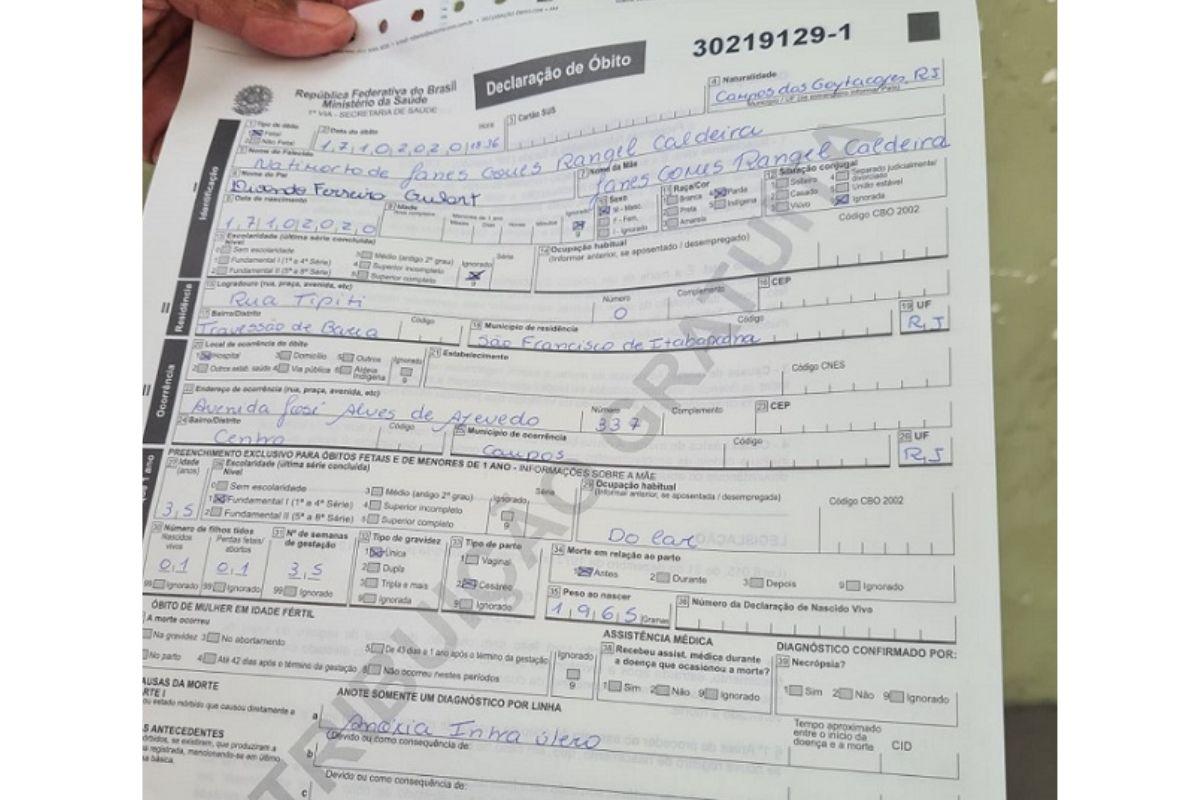 30219129-1
Declaração de Óbito
República Federativa do Brasil
Ministério da Saúde
1ª VIA - SECRETARIA DE SAÚDE
4 Naturalidade
Campos dos Goytacazes RJ
Município / UF (se estrangeiro informar País)
1 Tipo de óbito
1 Fetal
2 Não Fetal
2 Data do óbito
Hora
1,7,1,0,2,0,2,0
3 Cartão SUS
5 Nome do Falecido
Natimorto de Janes Gomes Rangel Caldeira
6 Nome do Pai
Ferreira Gulart
7 Nome da Mãe
Janes Gomes Rangel Caldeira
8 Data de nascimento
1,7,1,0,2,0,2,0
9 Idade
Anos completos
Menores de 1 ano
Meses Dias Horas Minutos
Ignorado
9
10 Sexo
M - Masc.
F - Fem.
I - Ignorado
11 Raça/Cor
1 Branca 4 Parda
2 Preta 5 Indígena
3 Amarela
12 Situação conjugal
1 Solteiro 4 Separado judicialmente/ divorciado
2 Casado 5 União estável
3 Viúvo 9 Ignorada
13 Escolaridade (última série concluída)
Nível
0 Sem escolaridade 3 Médio (antigo 2º grau) Ignorado Série
1 Fundamental I (1ª a 4ª Série) 4 Superior incompleto
2 Fundamental II (5ª a 8ª Série) 5 Superior completo 9
14 Ocupação habitual
(Informar anterior, se aposentado / desempregado)
Código CBO 2002
Identificação
15 Logradouro (rua, praça, avenida, etc)
Rua Tipiti
Número
0
Complemento
16 CEP
17 Bairro/Distrito
Travessão de Barra
Código
18 Município de residência
São Francisco de Itabapoana
Código
19 UF
R,J
Residência
20 Local de ocorrência do óbito
1 Hospital 3 Domicílio 5 Outros Ignorado
2 Outros estab. saúde 4 Via pública 6 Aldeia Indígena 9
21 Estabelecimento
Código CNES
22 Endereço de ocorrência (rua, praça, avenida, etc)
Avenida José Alves de Azevedo
Número
337
Complemento
23 CEP
24 Bairro/Distrito
Centro
Código
25 Município de ocorrência
Campos
Código
26 UF
R,J
Ocorrência
PREENCHIMENTO EXCLUSIVO PARA ÓBITOS FETAIS E DE MENORES DE 1 ANO - INFORMAÇÕES SOBRE A MÃE
27 Idade
(anos)
3,5
28 Escolaridade (última série concluída)
Nível
0 Sem escolaridade 3 Médio (antigo 2º grau) Ignorado Série
1 Fundamental I (1ª a 4ª Série) 4 Superior incompleto
2 Fundamental II (5ª a 8ª Série) 5 Superior completo 9
29 Ocupação habitual
(Informar anterior, se aposentada / desempregada)
Código CBO 2002
Do lar
30 Número de filhos tidos
Nascidos vivos
Perdas fetais/ abortos
0,1 0,1
99 Ignorado 99 Ignorado
31 Nº de semanas de gestação
3,5
99 Ignorado
32 Tipo de gravidez
1 Única
2 Dupla
3 Tripla e mais
9 Ignorada
33 Tipo de parto
1 Vaginal
2 Cesáreo
9 Ignorado
34 Morte em relação ao parto
1 Antes 2 Durante 3 Depois 9 Ignorado
35 Peso ao nascer
1,9,6,5 Gramas
36 Número da Declaração de Nascido Vivo
ÓBITO DE MULHER EM IDADE FÉRTIL
A morte ocorreu
Na gravidez 3 No abortamento 5 De 43 dias a 1 ano após o término da gestação Ignorado
No parto 4 Até 42 dias após o término da gestação 8 Não ocorreu nestes períodos 9
ASSISTÊNCIA MÉDICA
38 Recebeu assist. médica durante a doença que ocasionou a morte?
1 Sim 2 Não 9 Ignorado
DIAGNÓSTICO CONFIRMADO POR:
39 Necrópsia?
1 Sim 2 Não 9 Ignorado
AUSAS DA MORTE
ARTE I
ou estado mórbido que causou diretamente a
ANOTE SOMENTE UM DIAGNÓSTICO POR LINHA
a
Anóxia Intra útero
Tempo aproximado entre o início da doença e a morte
CID
AS ANTECEDENTES
b
Devido ou como consequência de:
c
Devido ou como consequência de:
TRIBUIÇÃO GRATUITA